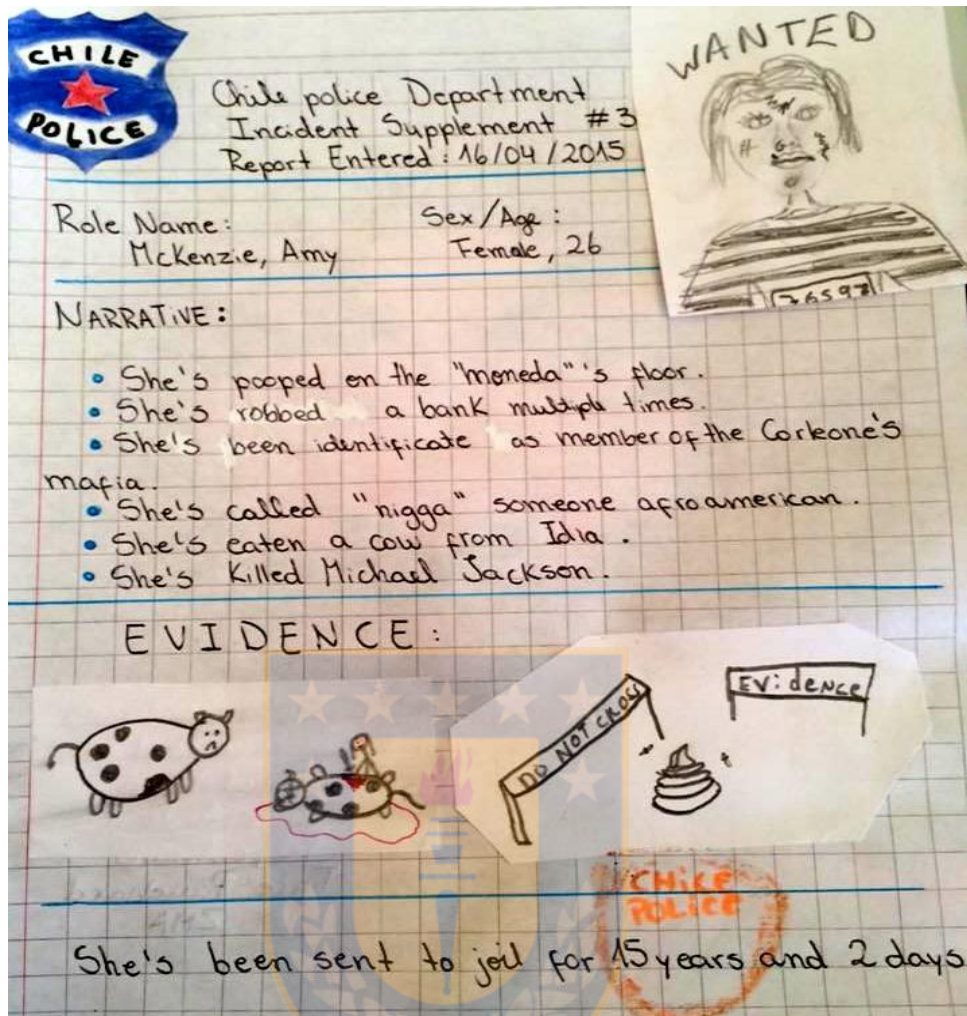 CHILE
POLICE
WANTED
Chile police Department
Incident Supplement #3
Report Entered: 16/04/2015
76597
Role Name:
McKenzie, Amy
Sex/Age:
Female, 26
NARRATIVE:
• She's pooped on the "moneda"'s floor.
• She's robbed a bank multiple times.
• She's been identificate as member of the Corleone's
mafia.
• She's called "nigga" someone afroamerican.
• She's eaten a cow from Idia.
• She's Killed Michael Jackson.
EVIDENCE:
DO NOT CROSS
EVidence
CHiLE
POLICE
She's been sent to jail for 15 years and 2 days